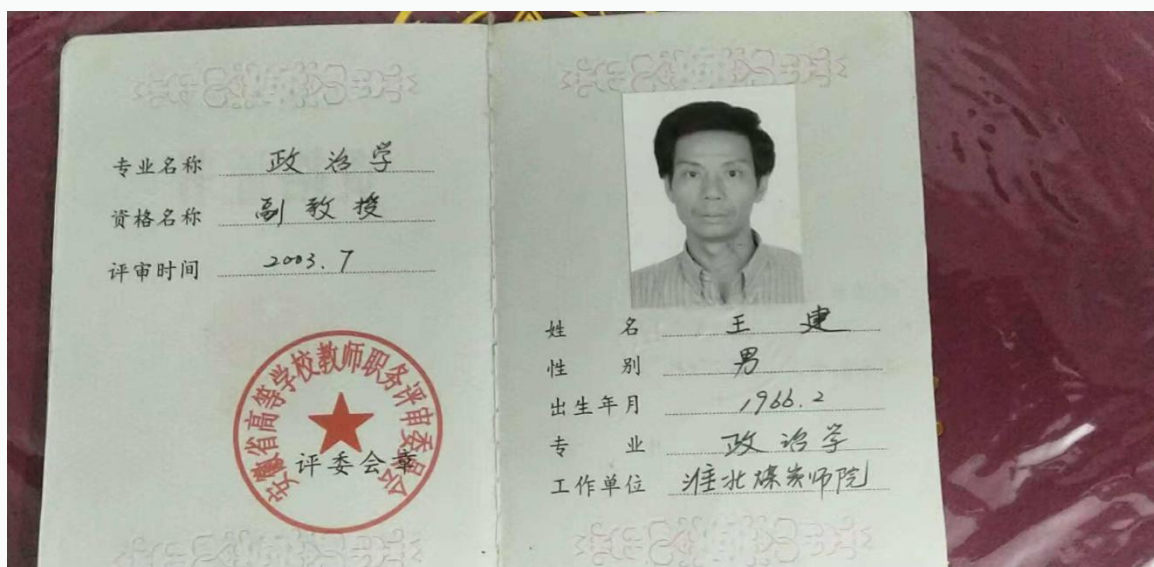 专业名称 政治学
资格名称 副教授
评审时间 2003.7
安徽省高等学校教师职务评审委员会
评委会章
姓 名 王建
性 别 男
出生年月 1966.2
专 业 政治学
工作单位 淮北煤炭师院